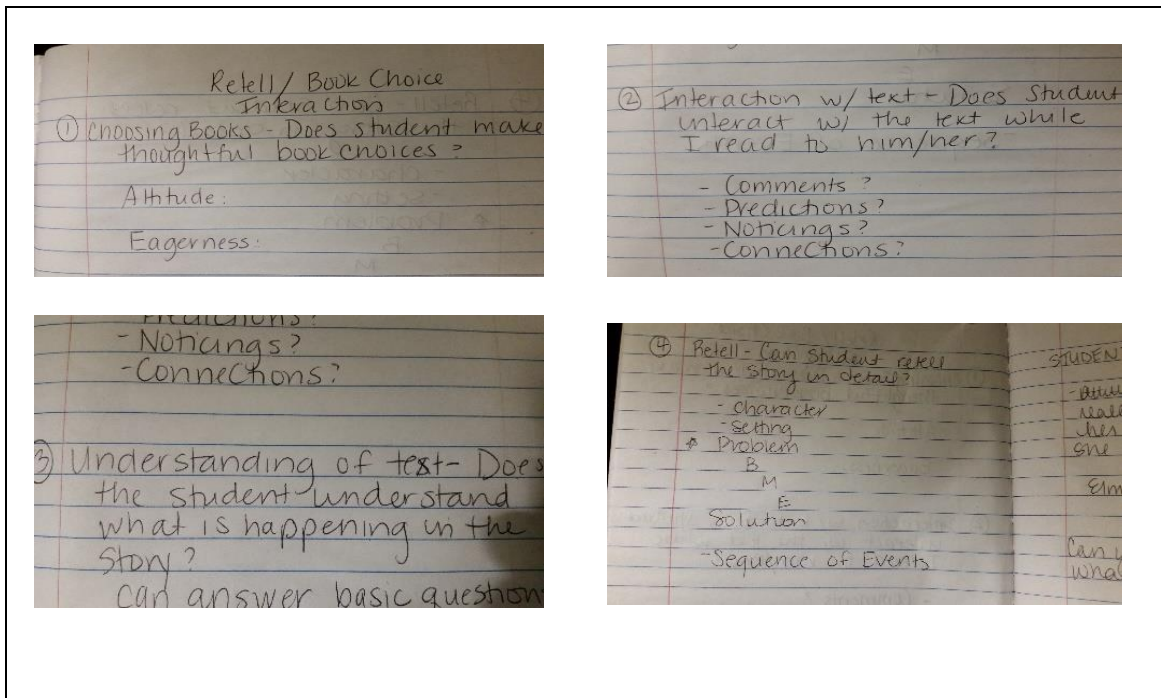 Retell / Book Choice
Interaction
① Choosing Books - Does student make
thoughtful book choices?
Attitude:
Eagerness:
② Interaction w/ text - Does Student
interact w/ the text while
I read to him/her?
- Comments?
- Predictions?
- Noticings?
- Connections?
Predictions?
- Noticings?
- Connections?
3) Understanding of text - Does
the student understand
what is happening in the
story?
can answer basic question
④ Retell - Can Student retell
the story in detail?
- Character
- Setting
* Problem
B
M
E
Solution
- Sequence of Events
STUDEN
her
she
Can y
wha